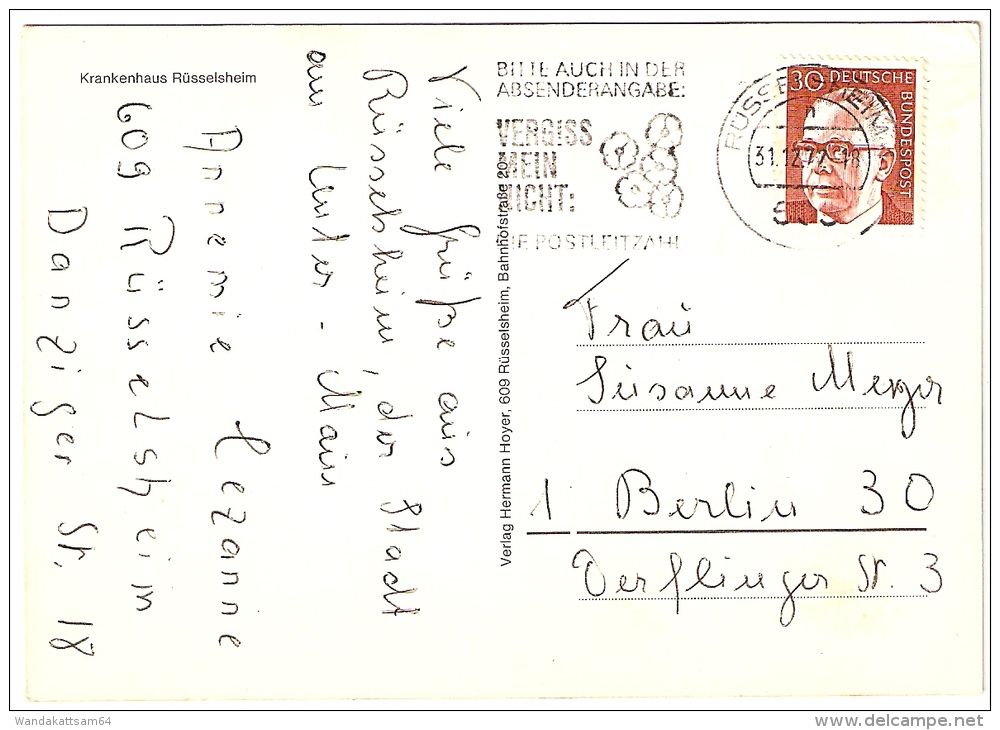 Krankenhaus Rüsselsheim
Viele Grüße aus
Rüsselsheim, der Stadt
am Unter-Main
Annemie
609 Rüsselsheim
Danziger Str. 18
Verlag Hermann Hoyer, 609 Rüsselsheim, Bahnhofstraße 20
BITTE AUCH IN DER
ABSENDERANGABE:
VERGISS
MEIN
NICHT:
DIE POSTLEITZAHL
RÜSSELSHEIM
31.12.72-18
30 DEUTSCHE
BUNDESPOST
Frau
Susanne
1 Berlin 30
Derflinger St. 3
Wandakattsam64
delcampe.net